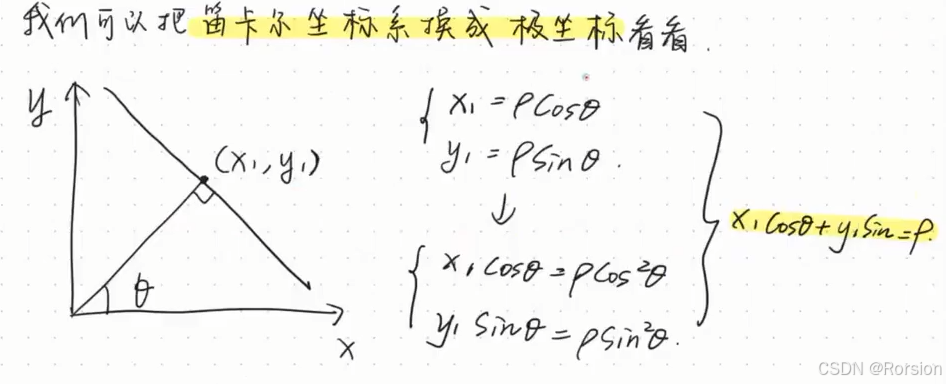 我们可以把笛卡尔坐标系换成极坐标看看.
y
(x₁, y₁)
θ
x
x₁ = ρcosθ
y₁ = ρsinθ.
↓
x₁cosθ = ρcos²θ
y₁sinθ = ρsin²θ.
x₁cosθ + y₁sin = ρ.
CSDN @Rorsion